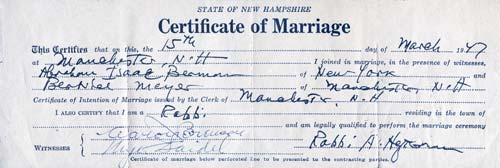 STATE OF NEW HAMPSHIRE
Certificate of Marriage
This Certifies that on this, the 15th day of March 1947
at Manchester, N.H I joined in marriage, in the presence of witnesses,
Abraham Isaac Berman of New York and
Beatrice Meyer of Manchester, N.H
Certificate of Intention of Marriage issued by the Clerk of Manchester, N.H
I ALSO CERTIFY that I am a Rabbi residing in the town
of and am legally qualified to perform the marriage ceremony
WITNESSES Rabbi A.
Certificate of marriage below perforated line to be presented to the contracting parties.